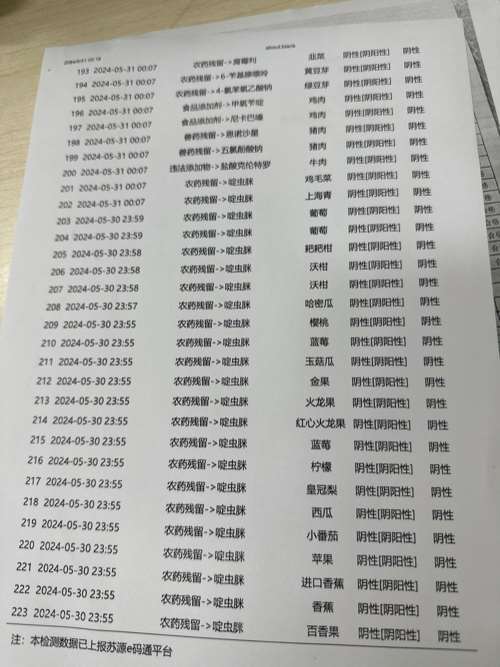 about:blank
193 2024-05-31 00:07 农药残留->腐霉利 韭菜 阴性[阴阳性] 阴性
194 2024-05-31 00:07 农药残留->6-苄基腺嘌呤 黄豆芽 阴性[阴阳性] 阴性
195 2024-05-31 00:07 农药残留->4-氯苯氧乙酸钠 绿豆芽 阴性[阴阳性] 阴性
196 2024-05-31 00:07 食品添加剂->甲氧苄啶 鸡肉 阴性[阴阳性] 阴性
197 2024-05-31 00:07 食品添加剂->尼卡巴嗪 鸡肉 阴性[阴阳性] 阴性
198 2024-05-31 00:07 兽药残留->恩诺沙星 猪肉 阴性[阴阳性] 阴性
199 2024-05-31 00:07 兽药残留->五氯酚酸钠 猪肉 阴性[阴阳性] 阴性
200 2024-05-31 00:07 违法添加物->盐酸克伦特罗 牛肉 阴性[阴阳性] 阴性
201 2024-05-31 00:07 农药残留->啶虫脒 鸡毛菜 阴性[阴阳性] 阴性
202 2024-05-31 00:07 农药残留->啶虫脒 上海青 阴性[阴阳性] 阴性
203 2024-05-30 23:59 农药残留->啶虫脒 葡萄 阴性[阴阳性] 阴性
204 2024-05-30 23:59 农药残留->啶虫脒 葡萄 阴性[阴阳性] 阴性
205 2024-05-30 23:58 农药残留->啶虫脒 耙耙柑 阴性[阴阳性] 阴性
206 2024-05-30 23:58 农药残留->啶虫脒 沃柑 阴性[阴阳性] 阴性
207 2024-05-30 23:58 农药残留->啶虫脒 沃柑 阴性[阴阳性] 阴性
208 2024-05-30 23:57 农药残留->啶虫脒 哈密瓜 阴性[阴阳性] 阴性
209 2024-05-30 23:55 农药残留->啶虫脒 樱桃 阴性[阴阳性] 阴性
210 2024-05-30 23:55 农药残留->啶虫脒 蓝莓 阴性[阴阳性] 阴性
211 2024-05-30 23:55 农药残留->啶虫脒 玉菇瓜 阴性[阴阳性] 阴性
212 2024-05-30 23:55 农药残留->啶虫脒 金果 阴性[阴阳性] 阴性
213 2024-05-30 23:55 农药残留->啶虫脒 火龙果 阴性[阴阳性] 阴性
214 2024-05-30 23:55 农药残留->啶虫脒 红心火龙果 阴性[阴阳性] 阴性
215 2024-05-30 23:55 农药残留->啶虫脒 蓝莓 阴性[阴阳性] 阴性
216 2024-05-30 23:55 农药残留->啶虫脒 柠檬 阴性[阴阳性] 阴性
217 2024-05-30 23:55 农药残留->啶虫脒 皇冠梨 阴性[阴阳性] 阴性
218 2024-05-30 23:55 农药残留->啶虫脒 西瓜 阴性[阴阳性] 阴性
219 2024-05-30 23:55 农药残留->啶虫脒 小番茄 阴性[阴阳性] 阴性
220 2024-05-30 23:55 农药残留->啶虫脒 苹果 阴性[阴阳性] 阴性
221 2024-05-30 23:55 农药残留->啶虫脒 进口香蕉 阴性[阴阳性] 阴性
222 2024-05-30 23:55 农药残留->啶虫脒 香蕉 阴性[阴阳性] 阴性
223 2024-05-30 23:55 农药残留->啶虫脒 百香果 阴性[阴阳性] 阴性
注：本检测数据已上报苏源e码通平台